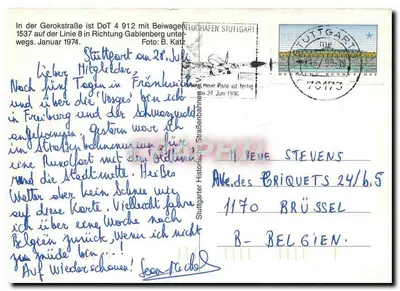 In der Gerokstraße ist DoT 4 912 mit Beiwagen
1537 auf der Linie 8 in Richtung Gablenberg unter-
wegs. Januar 1974. Foto: B. Katz
Stuttgart am 28. Juli
Lieber Mitglieder,
Nach fünf Tagen in Frankreich
und über die 'Vosges' bin ich
in Freiburg und der Schwarzwald
angekommen. Gestern war ich
im Straßenbahnmuseum für
eine Rundfahrt mit den Oldtimer
und die Stadtmitte. Heißes
Wetter aber kein Schnee wie
auf diese Karte. Vielleicht fahre
ich über eine Woche nach
Belgien zurück, wenn ich nicht
zu müde bin...!
Auf Wiederschauen! Jean-Michel
Stuttgarter Historische Straßenbahnen e.V.
FLUGHAFEN STUTTGART
neue Piste ist fertig
27. Juni 1996
STUTTGART
70173
RENE STEVENS
Ave. des CRIQUETS 24/b.5
1170 BRÜSSEL
B- BELGIEN.